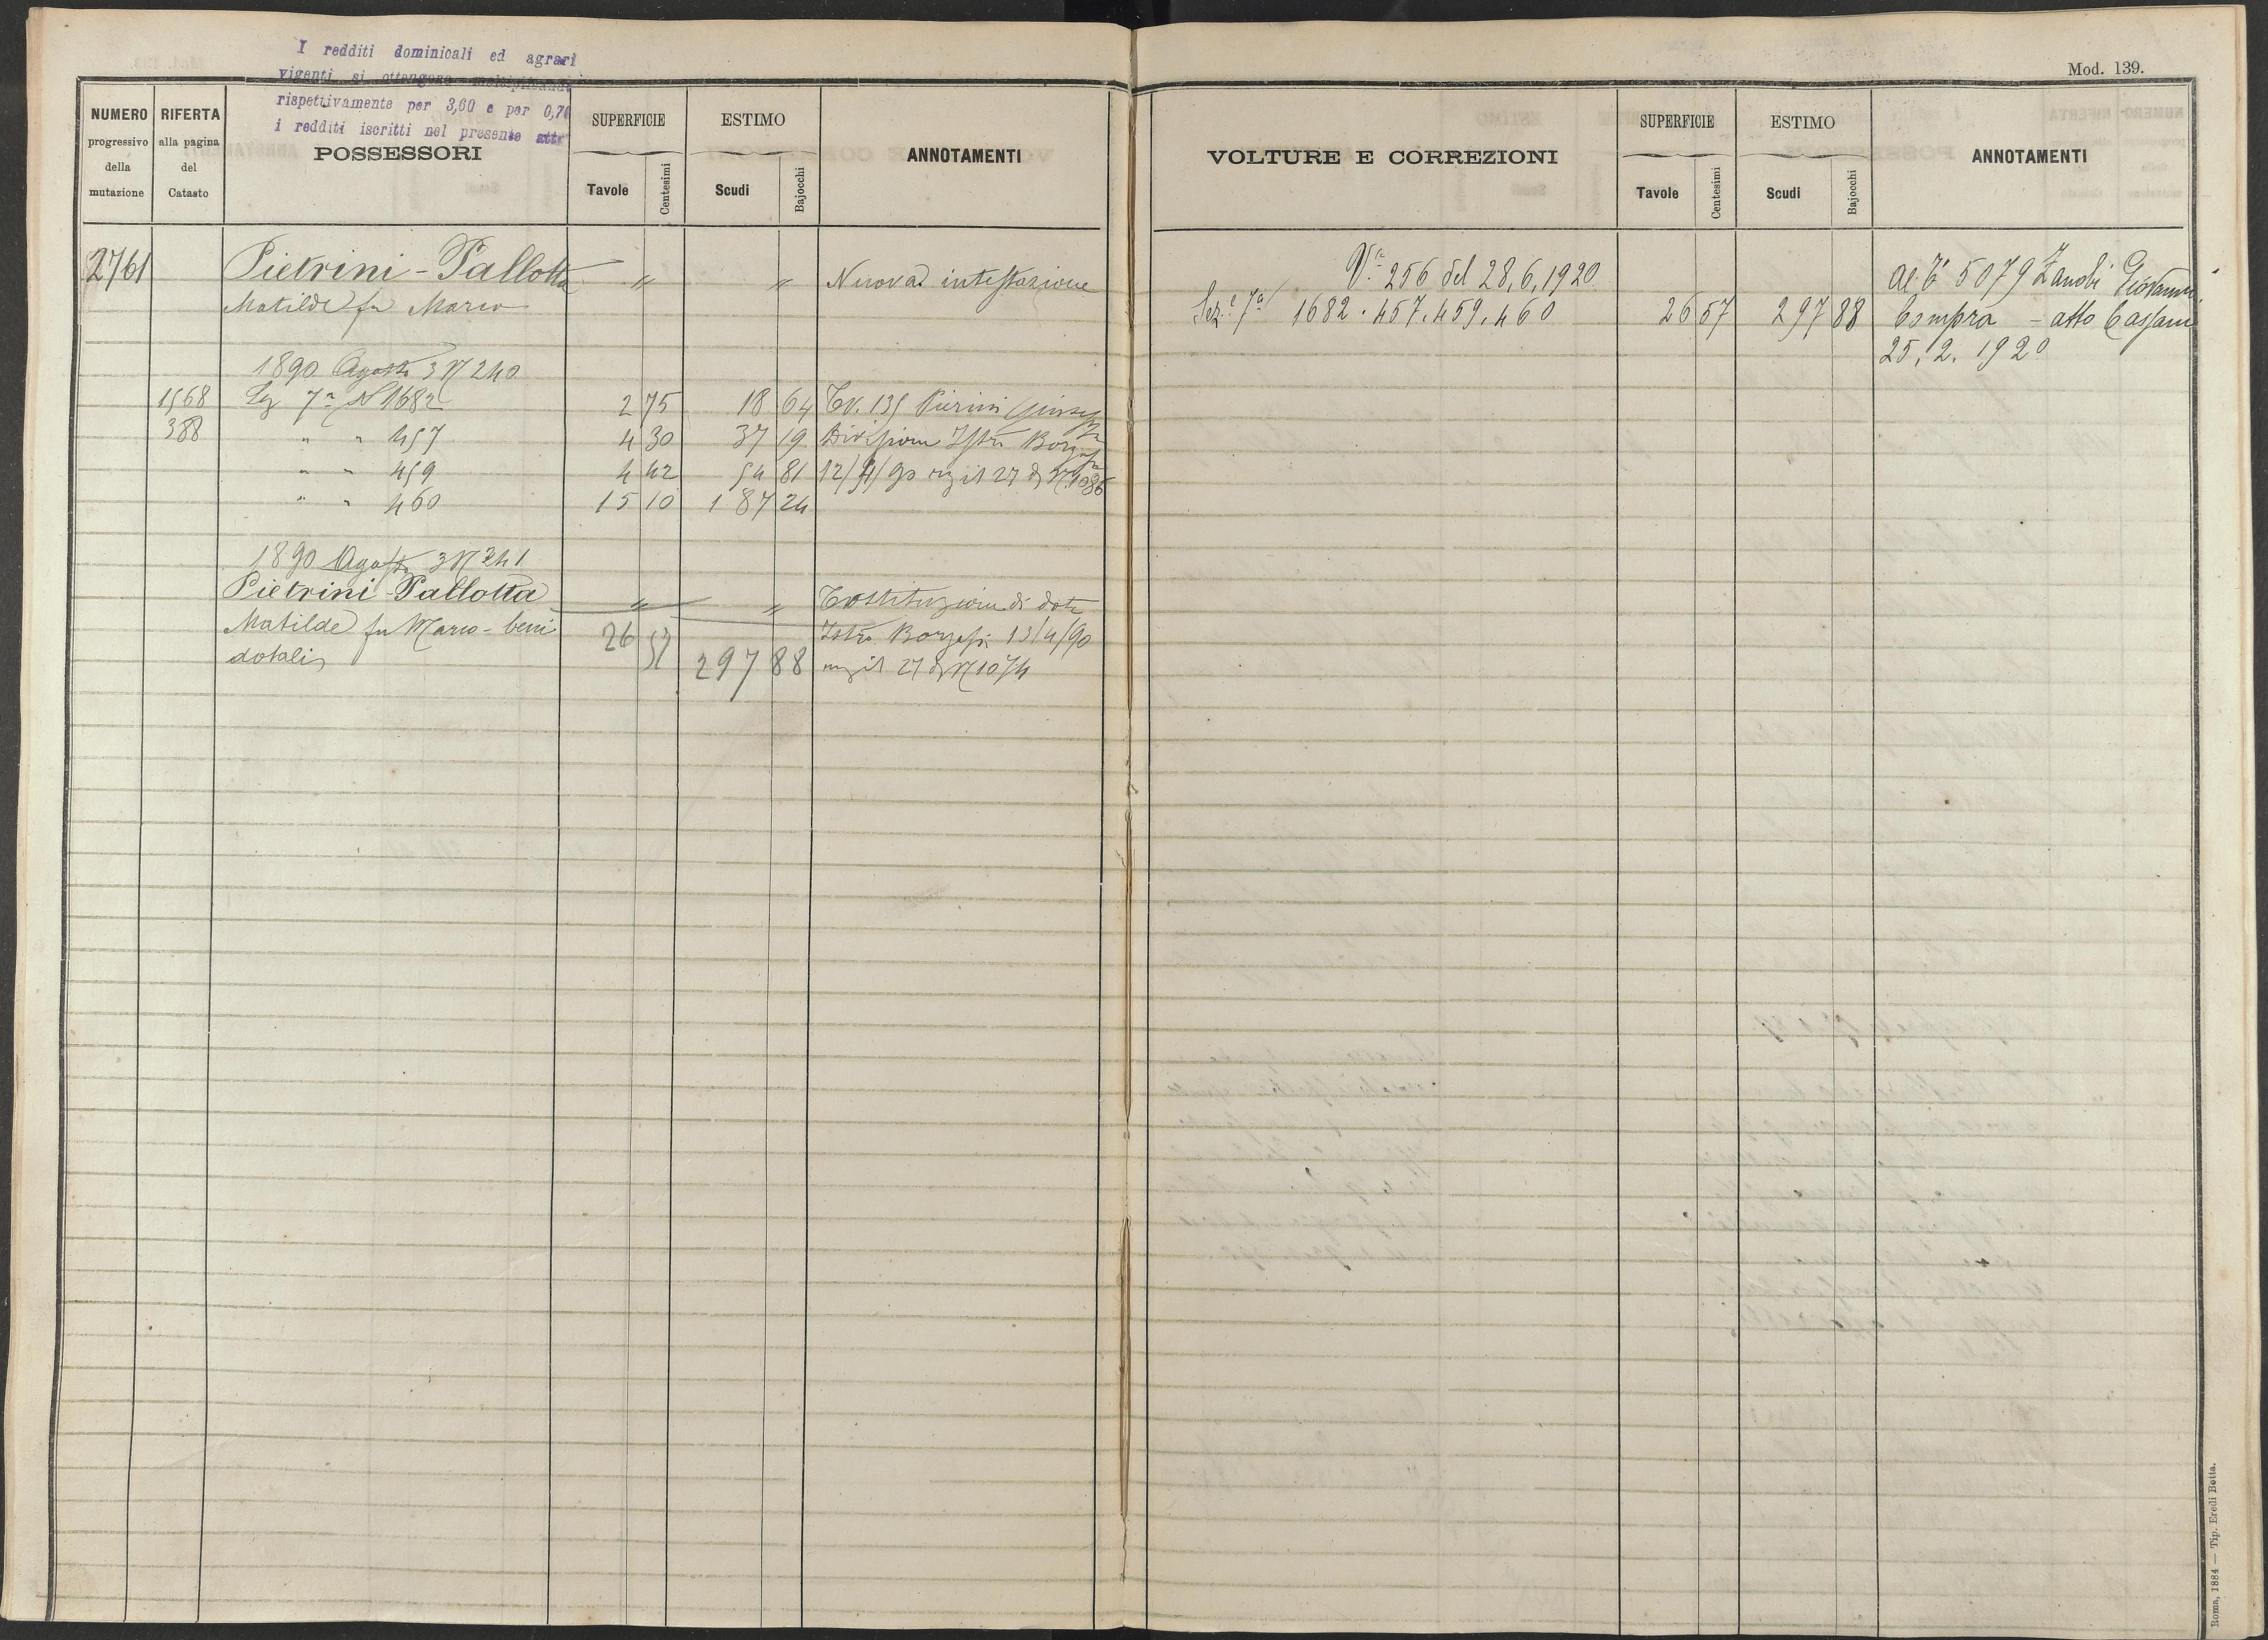 I redditi dominicali ed agrari
vigenti si ottengono moltiplicando
rispettivamente per 3,60 e per 0,70
i redditi iscritti nel presente
NUMERO progressivo della mutazione
RIFERTA alla pagina del Catasto
POSSESSORI
SUPERFICIE
Tavole Centesimi
ESTIMO
Scudi Bajocchi
ANNOTAMENTI
2761 Pietrini-Pallotta " " Nuova intestazione
Matilde fu Marco
1890 Agosto 3 N 240
1568 Sez 7a N 1682 2 75 18 64 Tv. 135 Pierini
388 " " 457 4 30 37 19 Divisione Istro
" " 459 4 42 54 81 12/4/90
" " 460 15 10 187 24
1890 Agosto 3 N 241
Pietrini-Pallotta " " Costituzione di dote
Matilde fu Marco-beni 26 57 Istro 13/4/90
dotali 297 88
Mod. 139.
VOLTURE E CORREZIONI
SUPERFICIE
Tavole Centesimi
ESTIMO
Scudi Bajocchi
ANNOTAMENTI
Va 256 del 28.6.1920 al T 5079 Zanobi Giovanni
Seze 7a 1682.457.459.460 26 57 297 88 Compra - atto Cassani
25.2.1920
Roma, 1884 — Tip. Eredi Botta.